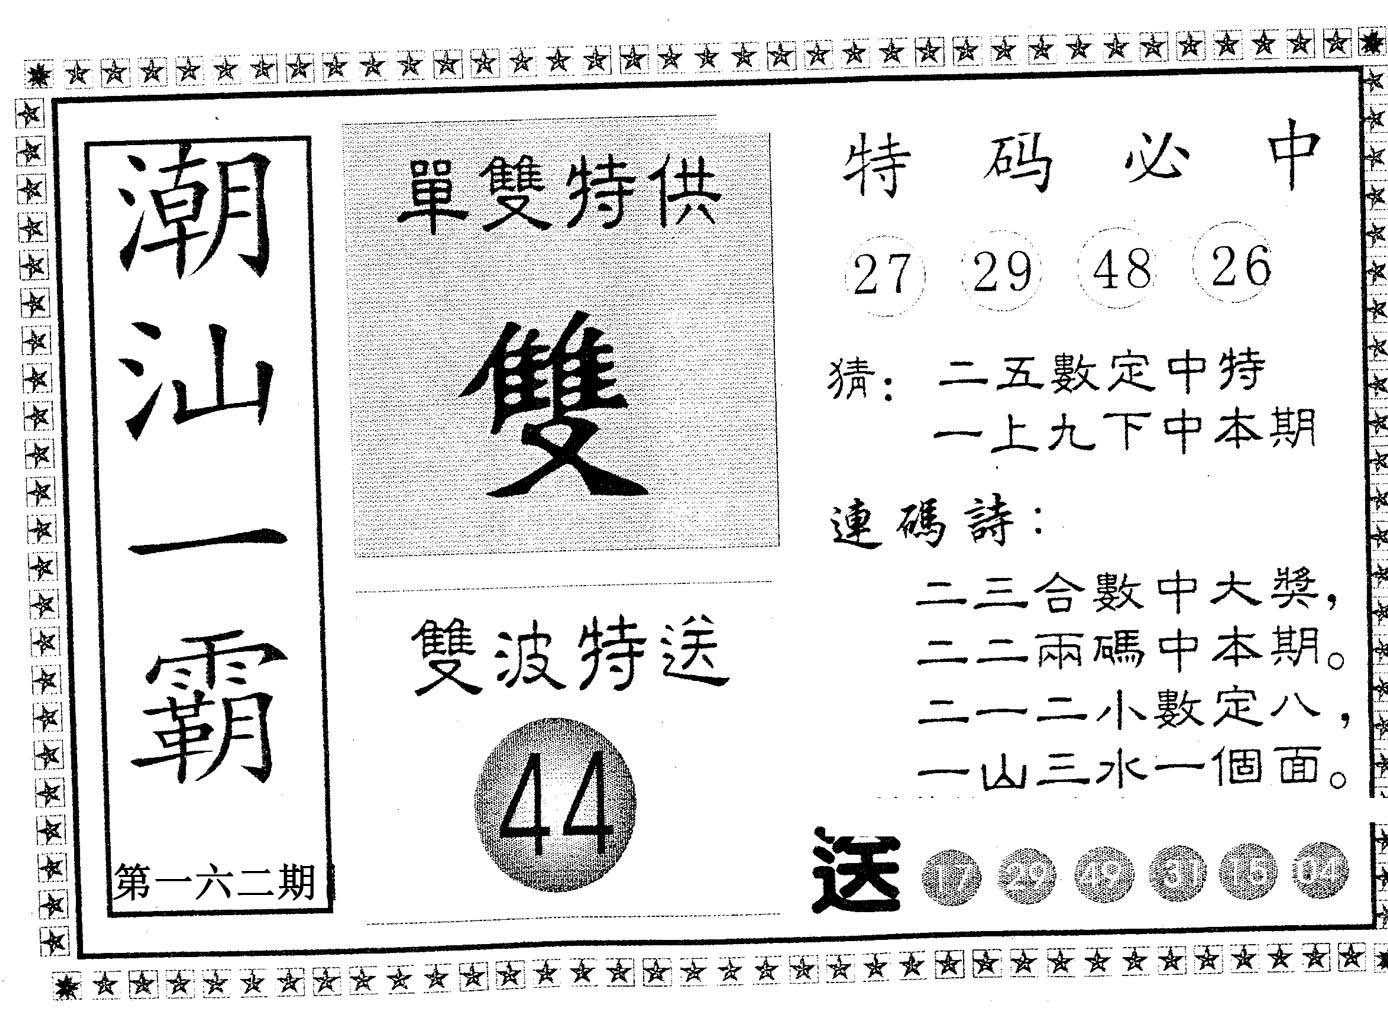 潮汕一霸
第一六二期
單雙特供
雙
雙波特送
44
特码必中
27 29 48 26
猜：二五數定中特
一上九下中本期
連碼詩：
二三合數中大獎，
二二兩碼中本期。
二一二小數定八，
一山三水一個面。
送 17 29 49 31 15 04